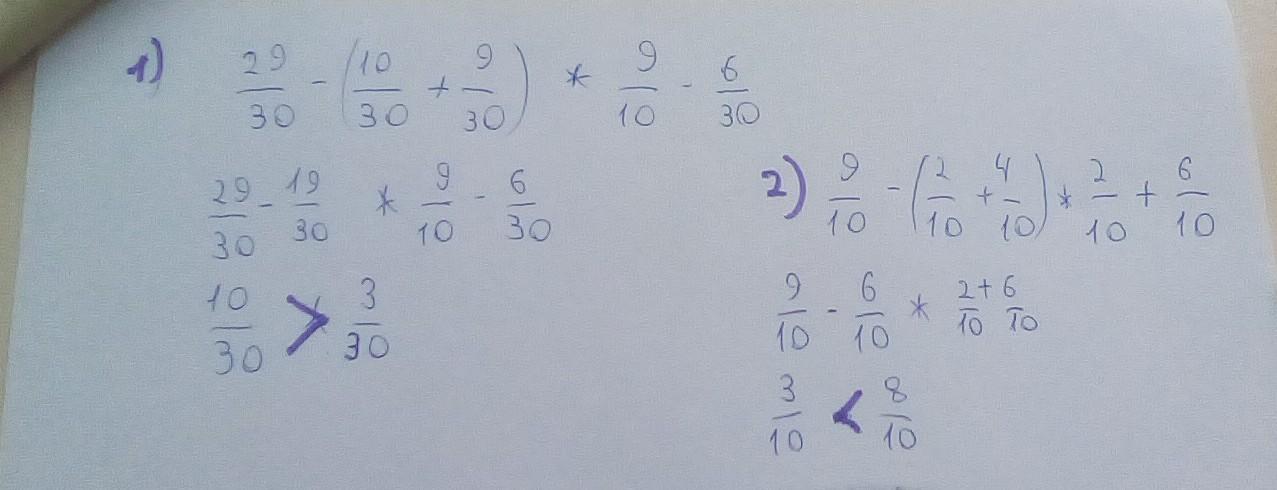 1) 29/30 - (10/30 + 9/30) * 9/10 - 6/30
29/30 - 19/30 * 9/10 - 6/30
10/30 > 3/30
2) 9/10 - (2/10 + 4/10) * 2/10 + 6/10
9/10 - 6/10 * 2/10 + 6/10
3/10 < 8/10